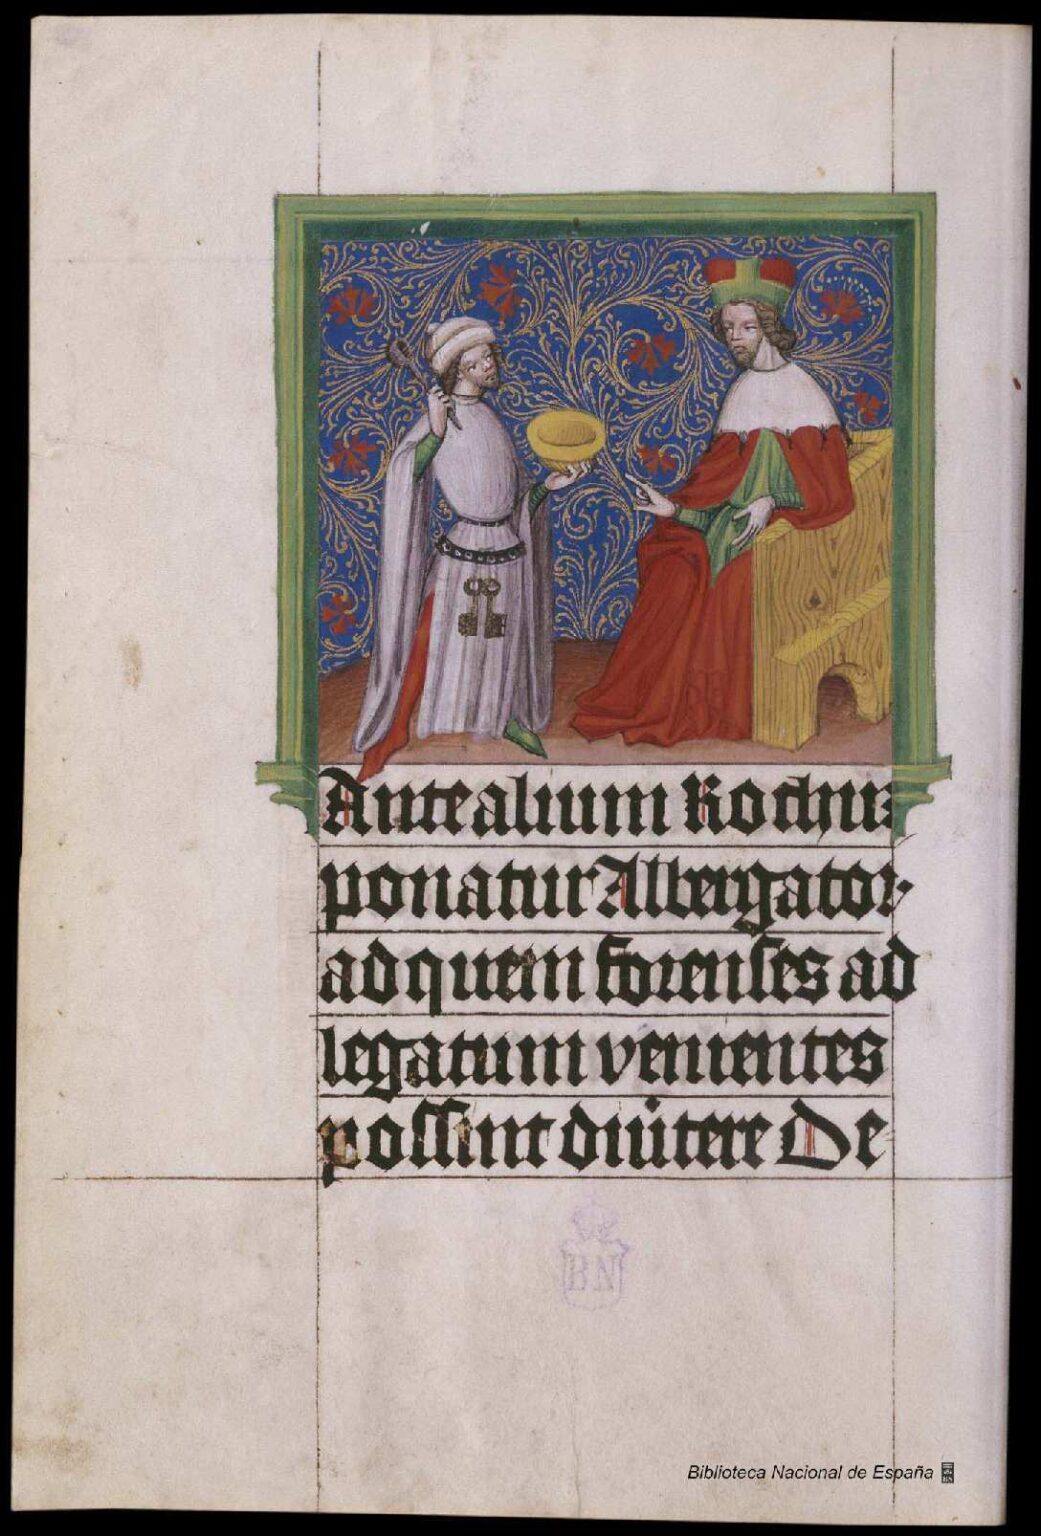 Ante alium Rochus
ponatur Albergator
ad quem forenses ad
legatum venientes
possint divitere De
BN
Biblioteca Nacional de España